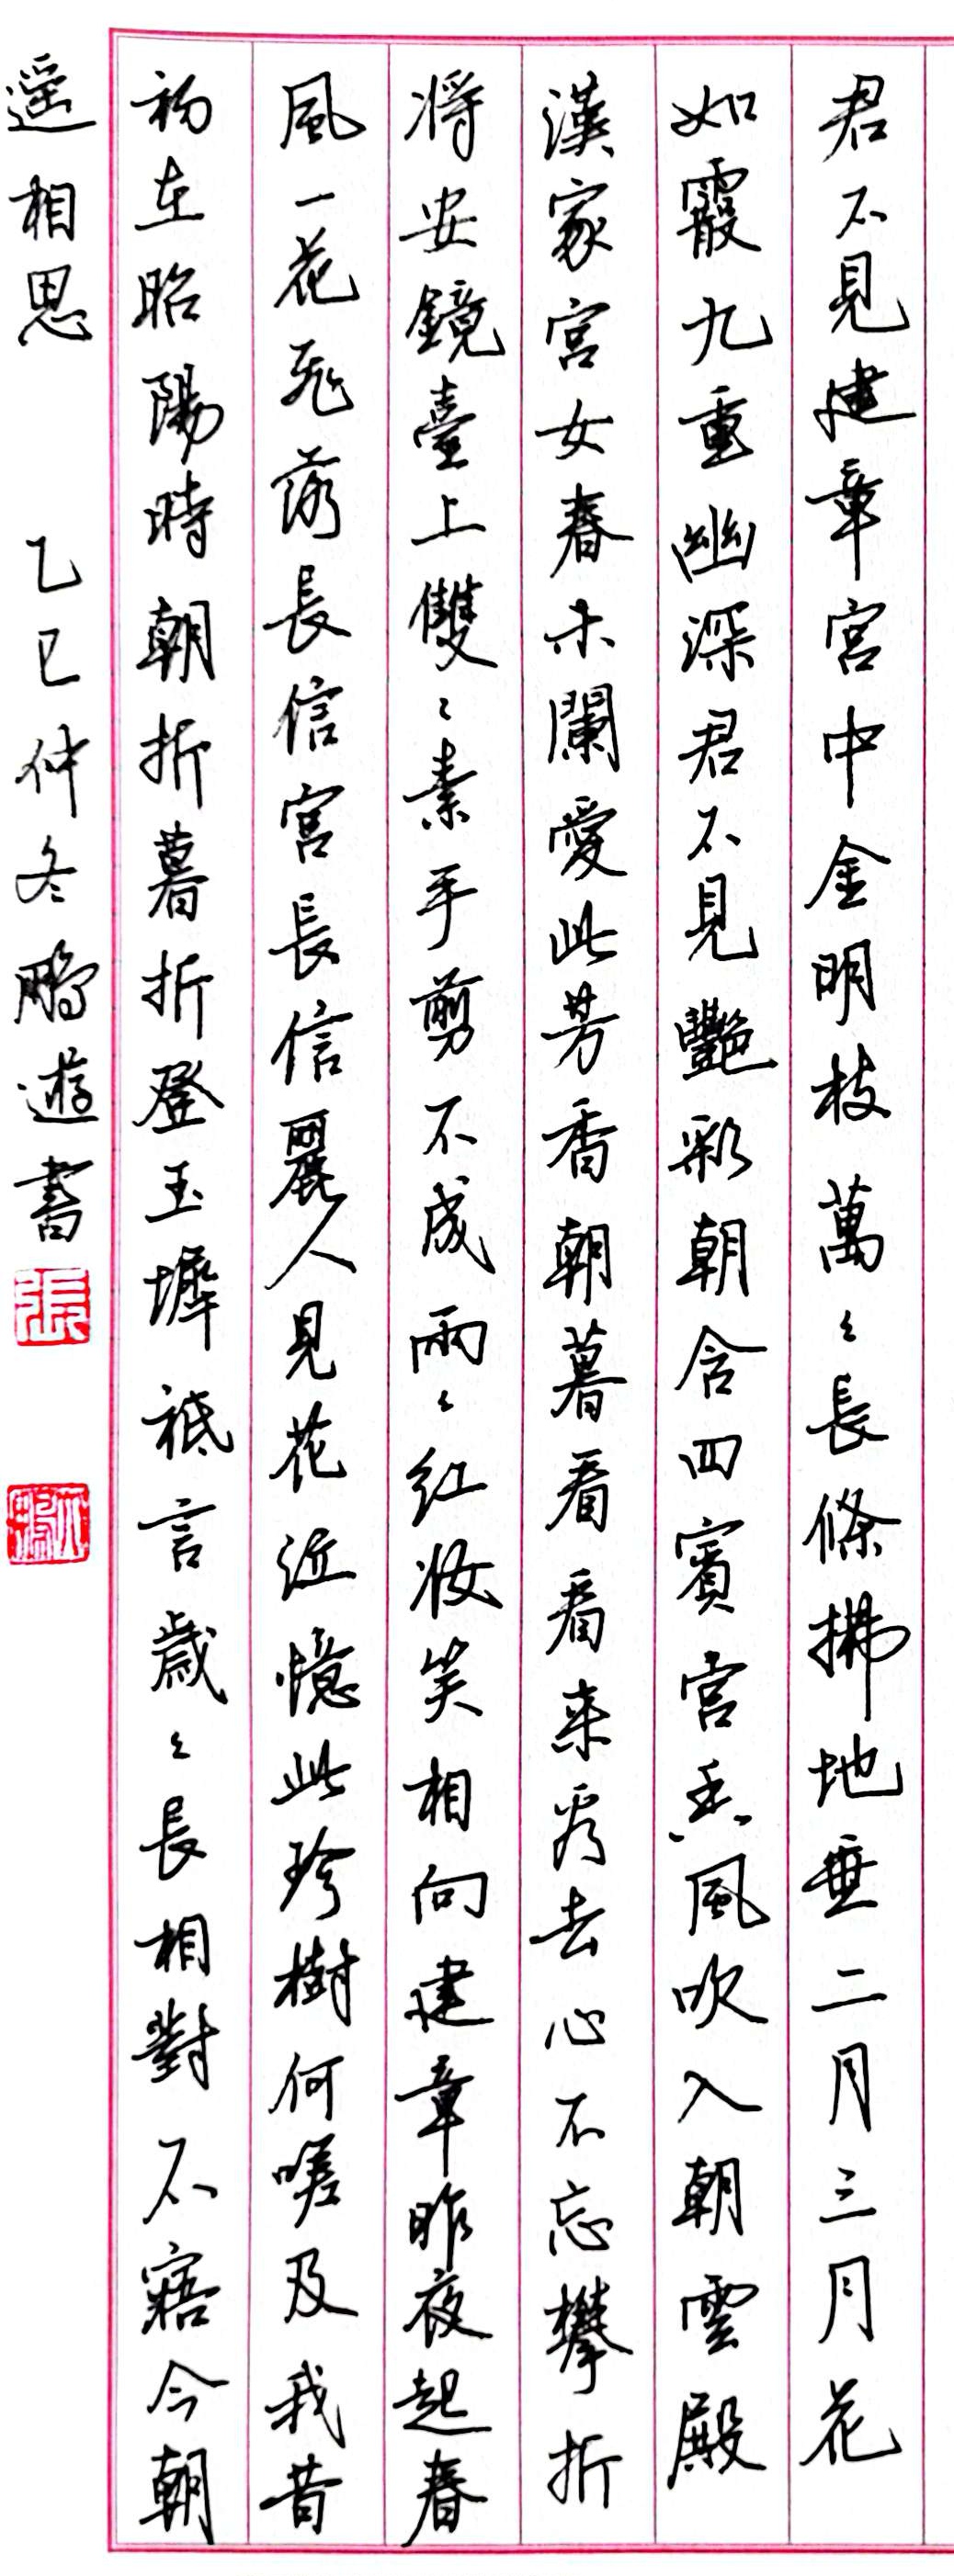 君不見建章宮中金明枝萬〻長條拂地垂二月三月花
如霰九重幽深君不見艷彩朝含四賓宮香風吹入朝雲殿
漢家宮女春未闌愛此芳香朝暮看看来看去心不忘攀折
将安鏡臺上雙〻素手剪不成兩〻红妆笑相向建章昨夜起春
風一花飛落長信宮長信麗人見花泣憶此珍樹何嗟及我昔
初在昭陽時朝折暮折登玉墀祗言歲〻長相對不寤今朝
遥相思 乙巳仲冬鵬遊書
張